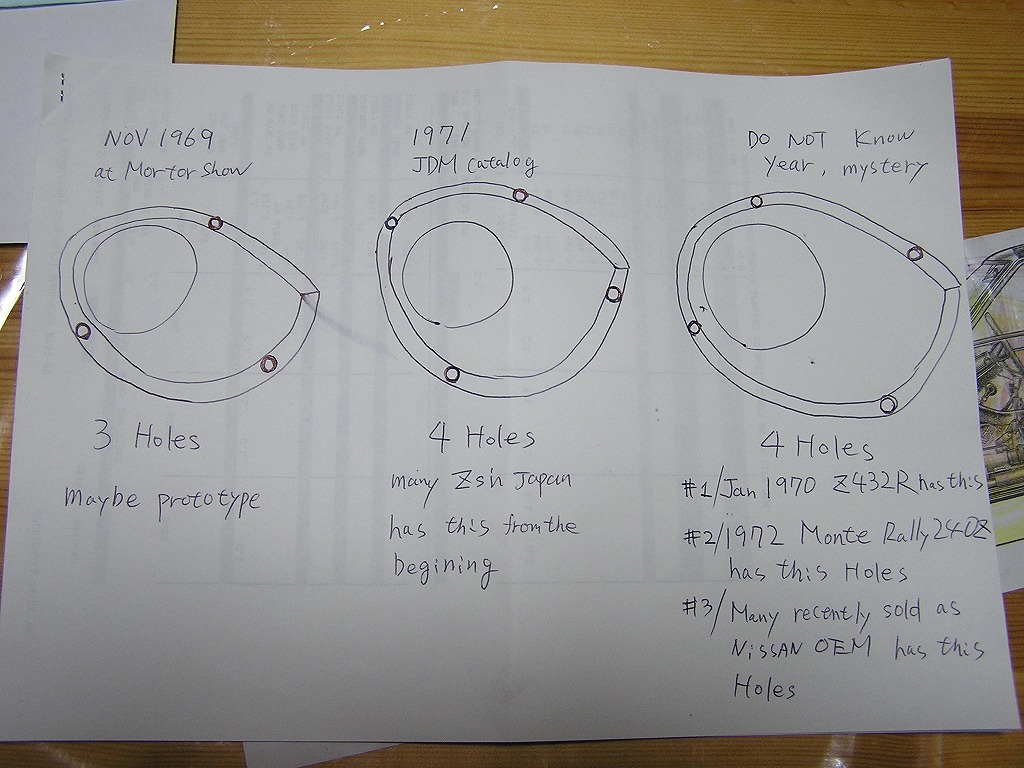 NOV 1969
at Mortor Show
3 Holes
maybe prototype
1971
JDM Catalog
4 Holes
many Zs in Japan
has this from the
begining
DO NOT Know
year, mystery
4 Holes
#1/Jan 1970 Z432R has this
#2/1972 Monte Rally 240Z
has this Holes
#3/Many recently sold as
NISSAN OEM has this
Holes